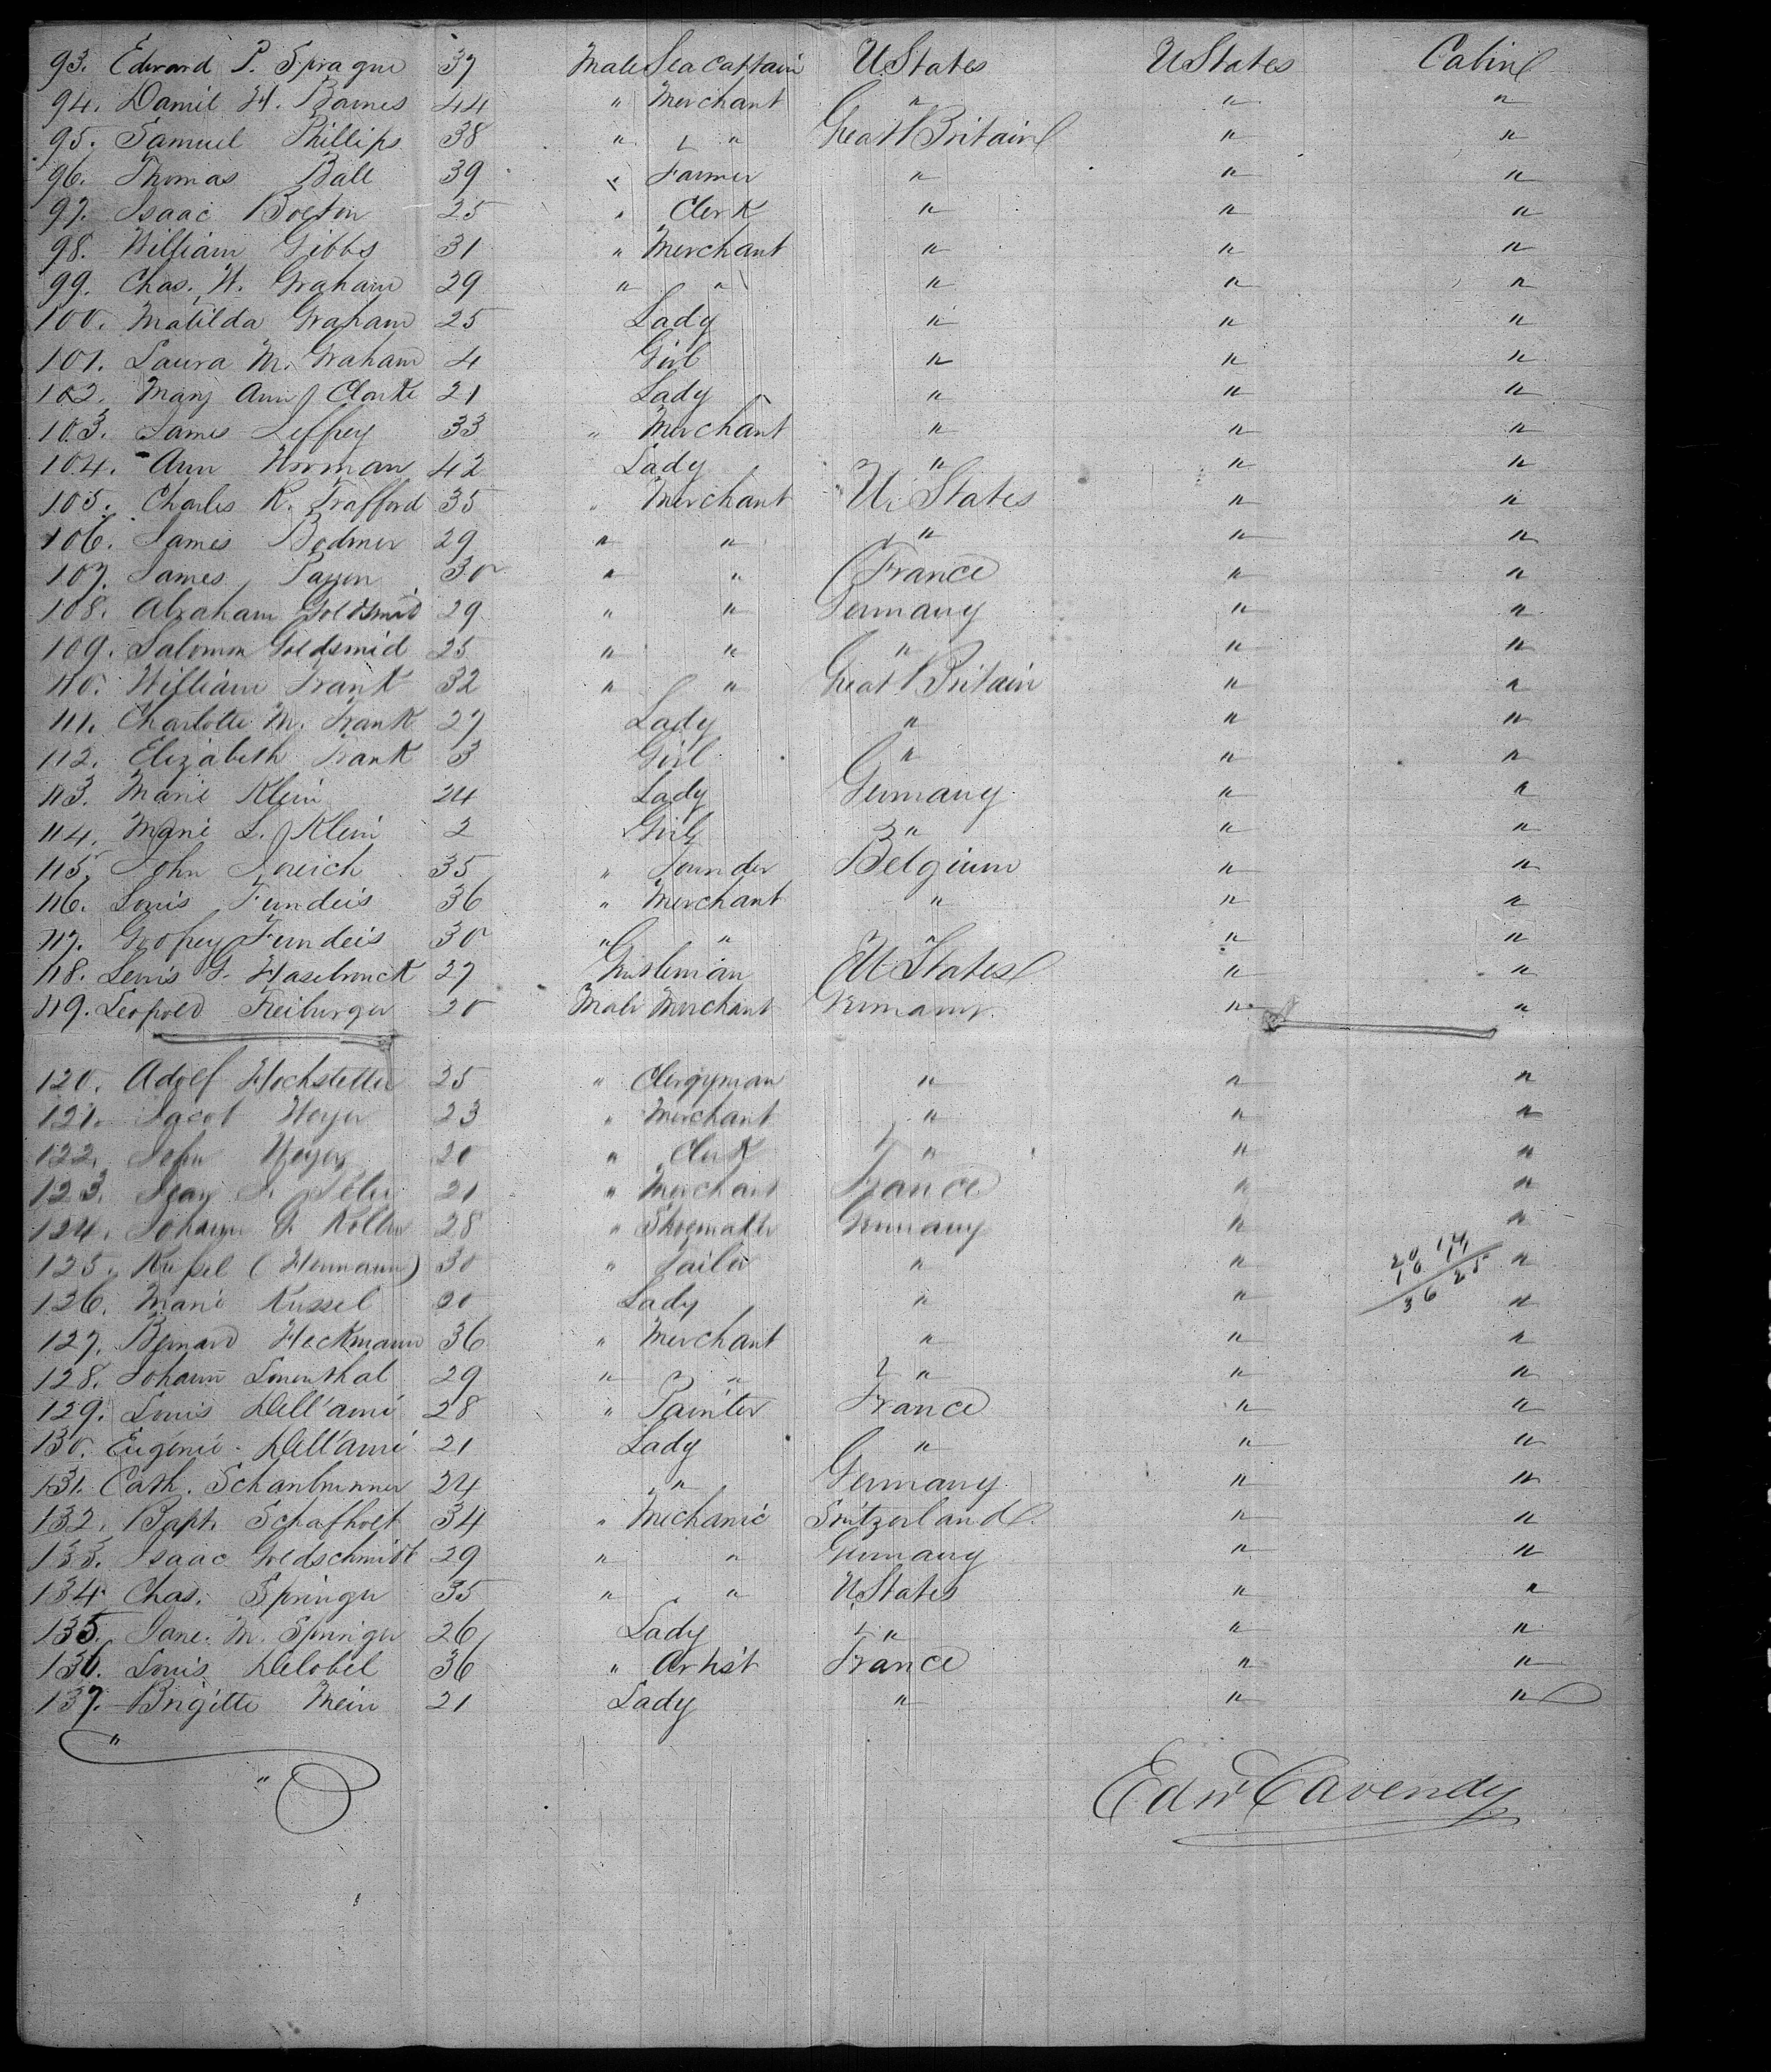 93. Edward P. Sprague 37 Male Sea captain U States U States Cabin
94. Daniel H. Barnes 44 " Merchant " " "
95. Samuel Phillips 38 " " Great Britain " "
96. Thomas Ball 39 " Farmer " " "
97. Isaac Bolton 25 " Clerk " " "
98. William Gibbs 31 " Merchant " " "
99. Chas. W. Graham 29 " " " " "
100. Matilda Graham 25 Lady " " "
101. Laura M. Graham 4 Girl " " "
102. Mary Ann Clarke 21 Lady " " "
103. James Jeffrey 33 " Merchant " " "
104. Ann Norman 42 Lady " " "
105. Charles R. Trafford 35 " Merchant U. States " "
106. James Bodmer 29 " " " " "
107. James Payen 30 " " France " "
108. Abraham Goldsmid 29 " " Germany " "
109. Salomon Goldsmid 25 " " " " "
110. William Frank 32 " " Great Britain " "
111. Charlotte M. Frank 27 Lady " " "
112. Elizabeth Frank 3 Girl " " "
113. Marie Klein 24 Lady Germany " "
114. Marie L. Klein 2 Girl " " "
115. John 35 " Founder Belgium " "
116. Louis Fundeis 36 " Merchant " " "
117. Fundeis 30 " " " " "
118. Lewis G. Hasebrouck 27 Gentleman U States " "
119. Leopold Freiburger 20 Male Merchant Germany " "
120. Adolf Hochstetter 25 " Clergyman " " "
121. Jacob 23 " Merchant " " "
122. John 20 " Clerk " " "
123. 21 " Merchant France " "
124. Johann Koller 28 " Shoemaker Germany " "
125. (Hermann) 30 " Tailor " " "
126. Marie Kussel 20 Lady " " "
127. Bernard Heckmann 36 " Merchant " " "
128. Johann Lonenthal 29 " " " " "
129. Louis Dell'ami 28 " Painter France " "
130. Eugénie Dell'ami 21 Lady " " "
131. Cath. Schanbrunner 24 " Germany " "
132. Bapt. Schafholt 34 " Mechanic Switzerland " "
133. Isaac Goldschmidt 29 " " Germany " "
134. Chas. Springer 35 " " U States " "
135. Jane M. Springer 26 Lady " " "
136. Louis Delobel 36 " Artist France " "
137. Brigitte Mein 21 Lady " " "
Edwd Cavendy